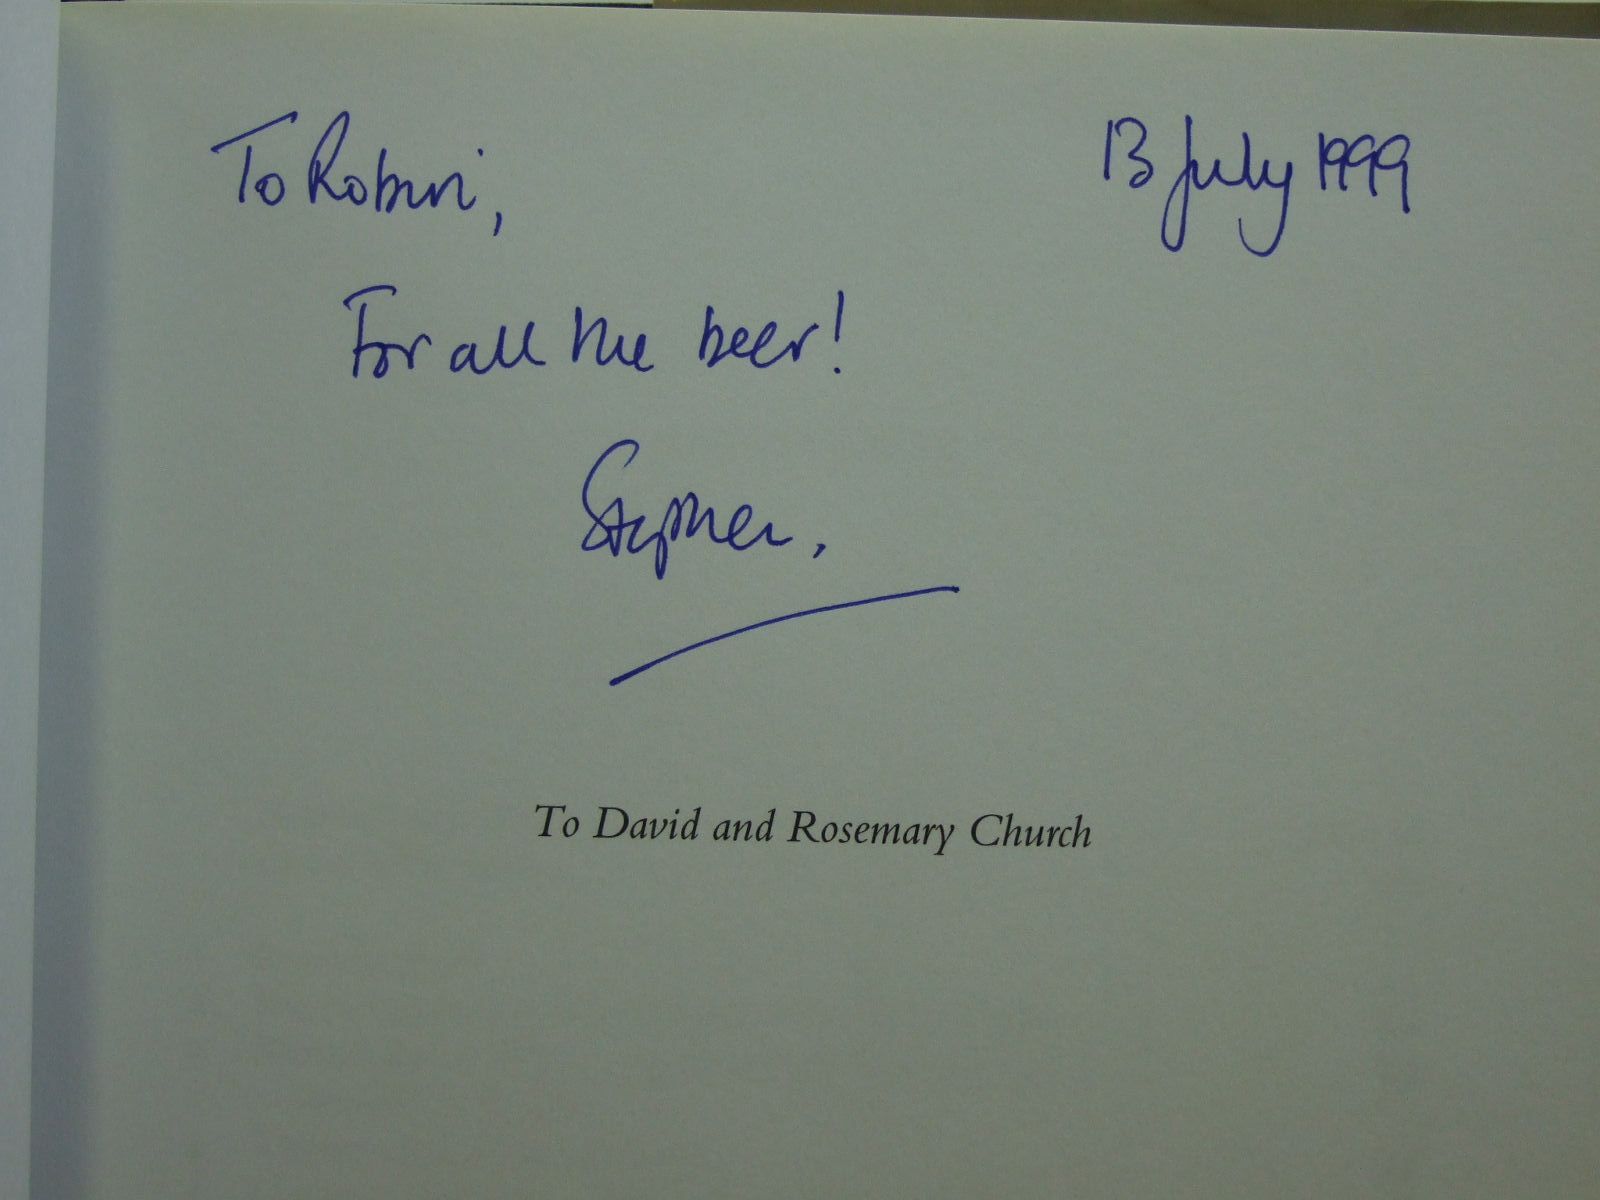 To Robin,
13 July 1999
For all the beer!
Stephen.
To David and Rosemary Church